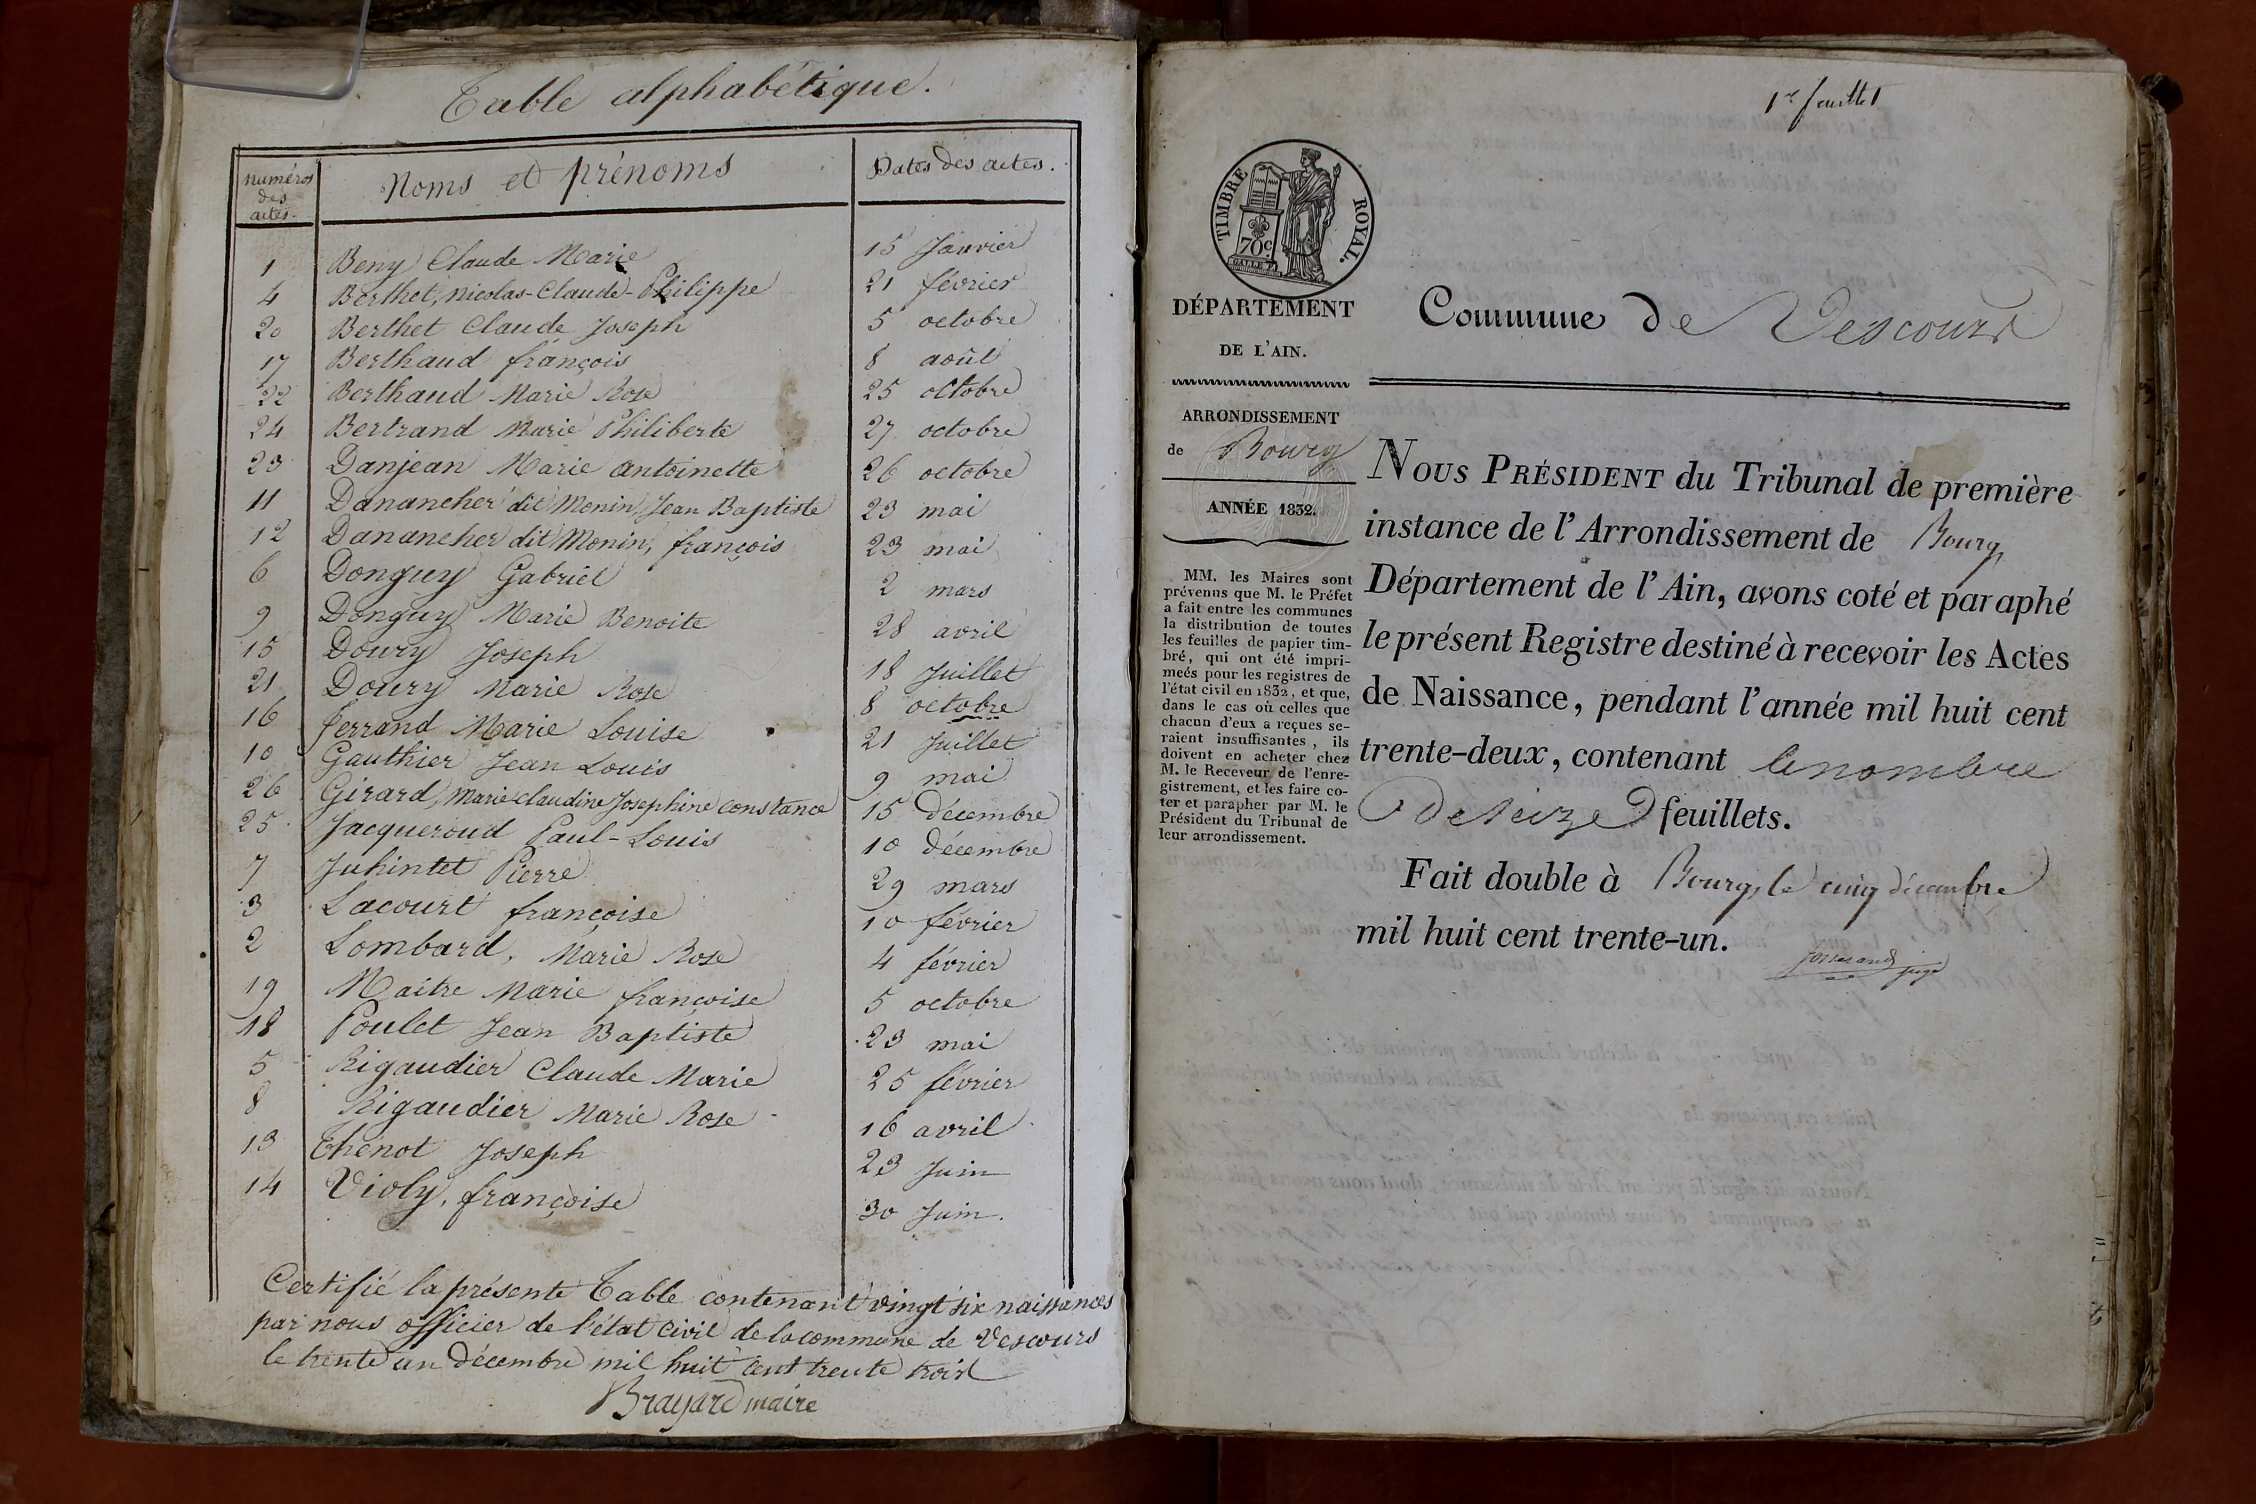 Table alphabétique.
numéros des actes. Noms et prénoms Dates des actes.
1 Beny Claude Marie 15 Janvier
4 Berthet, Nicolas-Claude-Philippe 21 février
20 Berthet Claude Joseph 5 octobre
17 Berthaud françois 8 août
22 Berthaud Marie Rose 25 octobre
24 Bertrand Marie Philiberte 27 octobre
23 Danjean Marie antoinette 26 octobre
11 Danancher dit Monin, Jean Baptiste 23 mai
12 Danancher dit Monin, françois 23 mai
6 Donguy Gabriel 2 mars
9 Donguy Marie Benoite 28 avril
15 Doury Joseph 18 Juillet
21 Doury Marie Rose 8 octobre
16 ferrand Marie Louise 21 Juillet
10 Gauthier Jean Louis 9 mai
26 Girard, Marie Claudine Josephine constance 15 décembre
25 Jacqueroud Paul-Louis 10 décembre
7 Juhintet Pierre 29 mars
3 Lacourt françoise 10 février
2 Lombard, Marie Rose 4 février
19 Maitre Marie françoise 5 octobre
18 Poulet Jean Baptiste 23 mai
5 Rigaudier Claude Marie 25 février
8 Rigaudier Marie Rose 16 avril
13 Thenot Joseph 23 Juin
14 Violy, françoise 30 Juin.
Certifié la présente Table contenant vingt six naissances
par nous officier de l'état civil de la commune de Vescours
le trente un décembre mil huit cent trente trois
Brayard maire
1er feuillet
TIMBRE ROYAL.
70c
DÉPARTEMENT
DE L'AIN.
Commune de Vescours
ARRONDISSEMENT
de Bourg
ANNÉE 1832.
MM. les Maires sont
prévenus que M. le Préfet
a fait entre les communes
la distribution de toutes
les feuilles de papier tim-
bré, qui ont été impri-
meés pour les registres de
l'état civil en 1832, et que,
dans le cas où celles que
chacun d'eux a reçues se-
raient insuffisantes, ils
doivent en acheter chez
M. le Receveur de l'enre-
gistrement, et les faire co-
ter et parapher par M. le
Président du Tribunal de
leur arrondissement.
NOUS PRÉSIDENT du Tribunal de première
instance de l'Arrondissement de Bourg,
Département de l'Ain, avons coté et paraphé
le présent Registre destiné à recevoir les Actes
de Naissance, pendant l'année mil huit cent
trente-deux, contenant le nombre
de seize feuillets.
Fait double à Bourg, le cinq décembre
mil huit cent trente-un.
juge